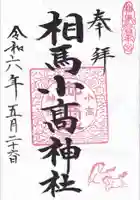 奉拝
相馬小高神社
令和六年五月二十六日